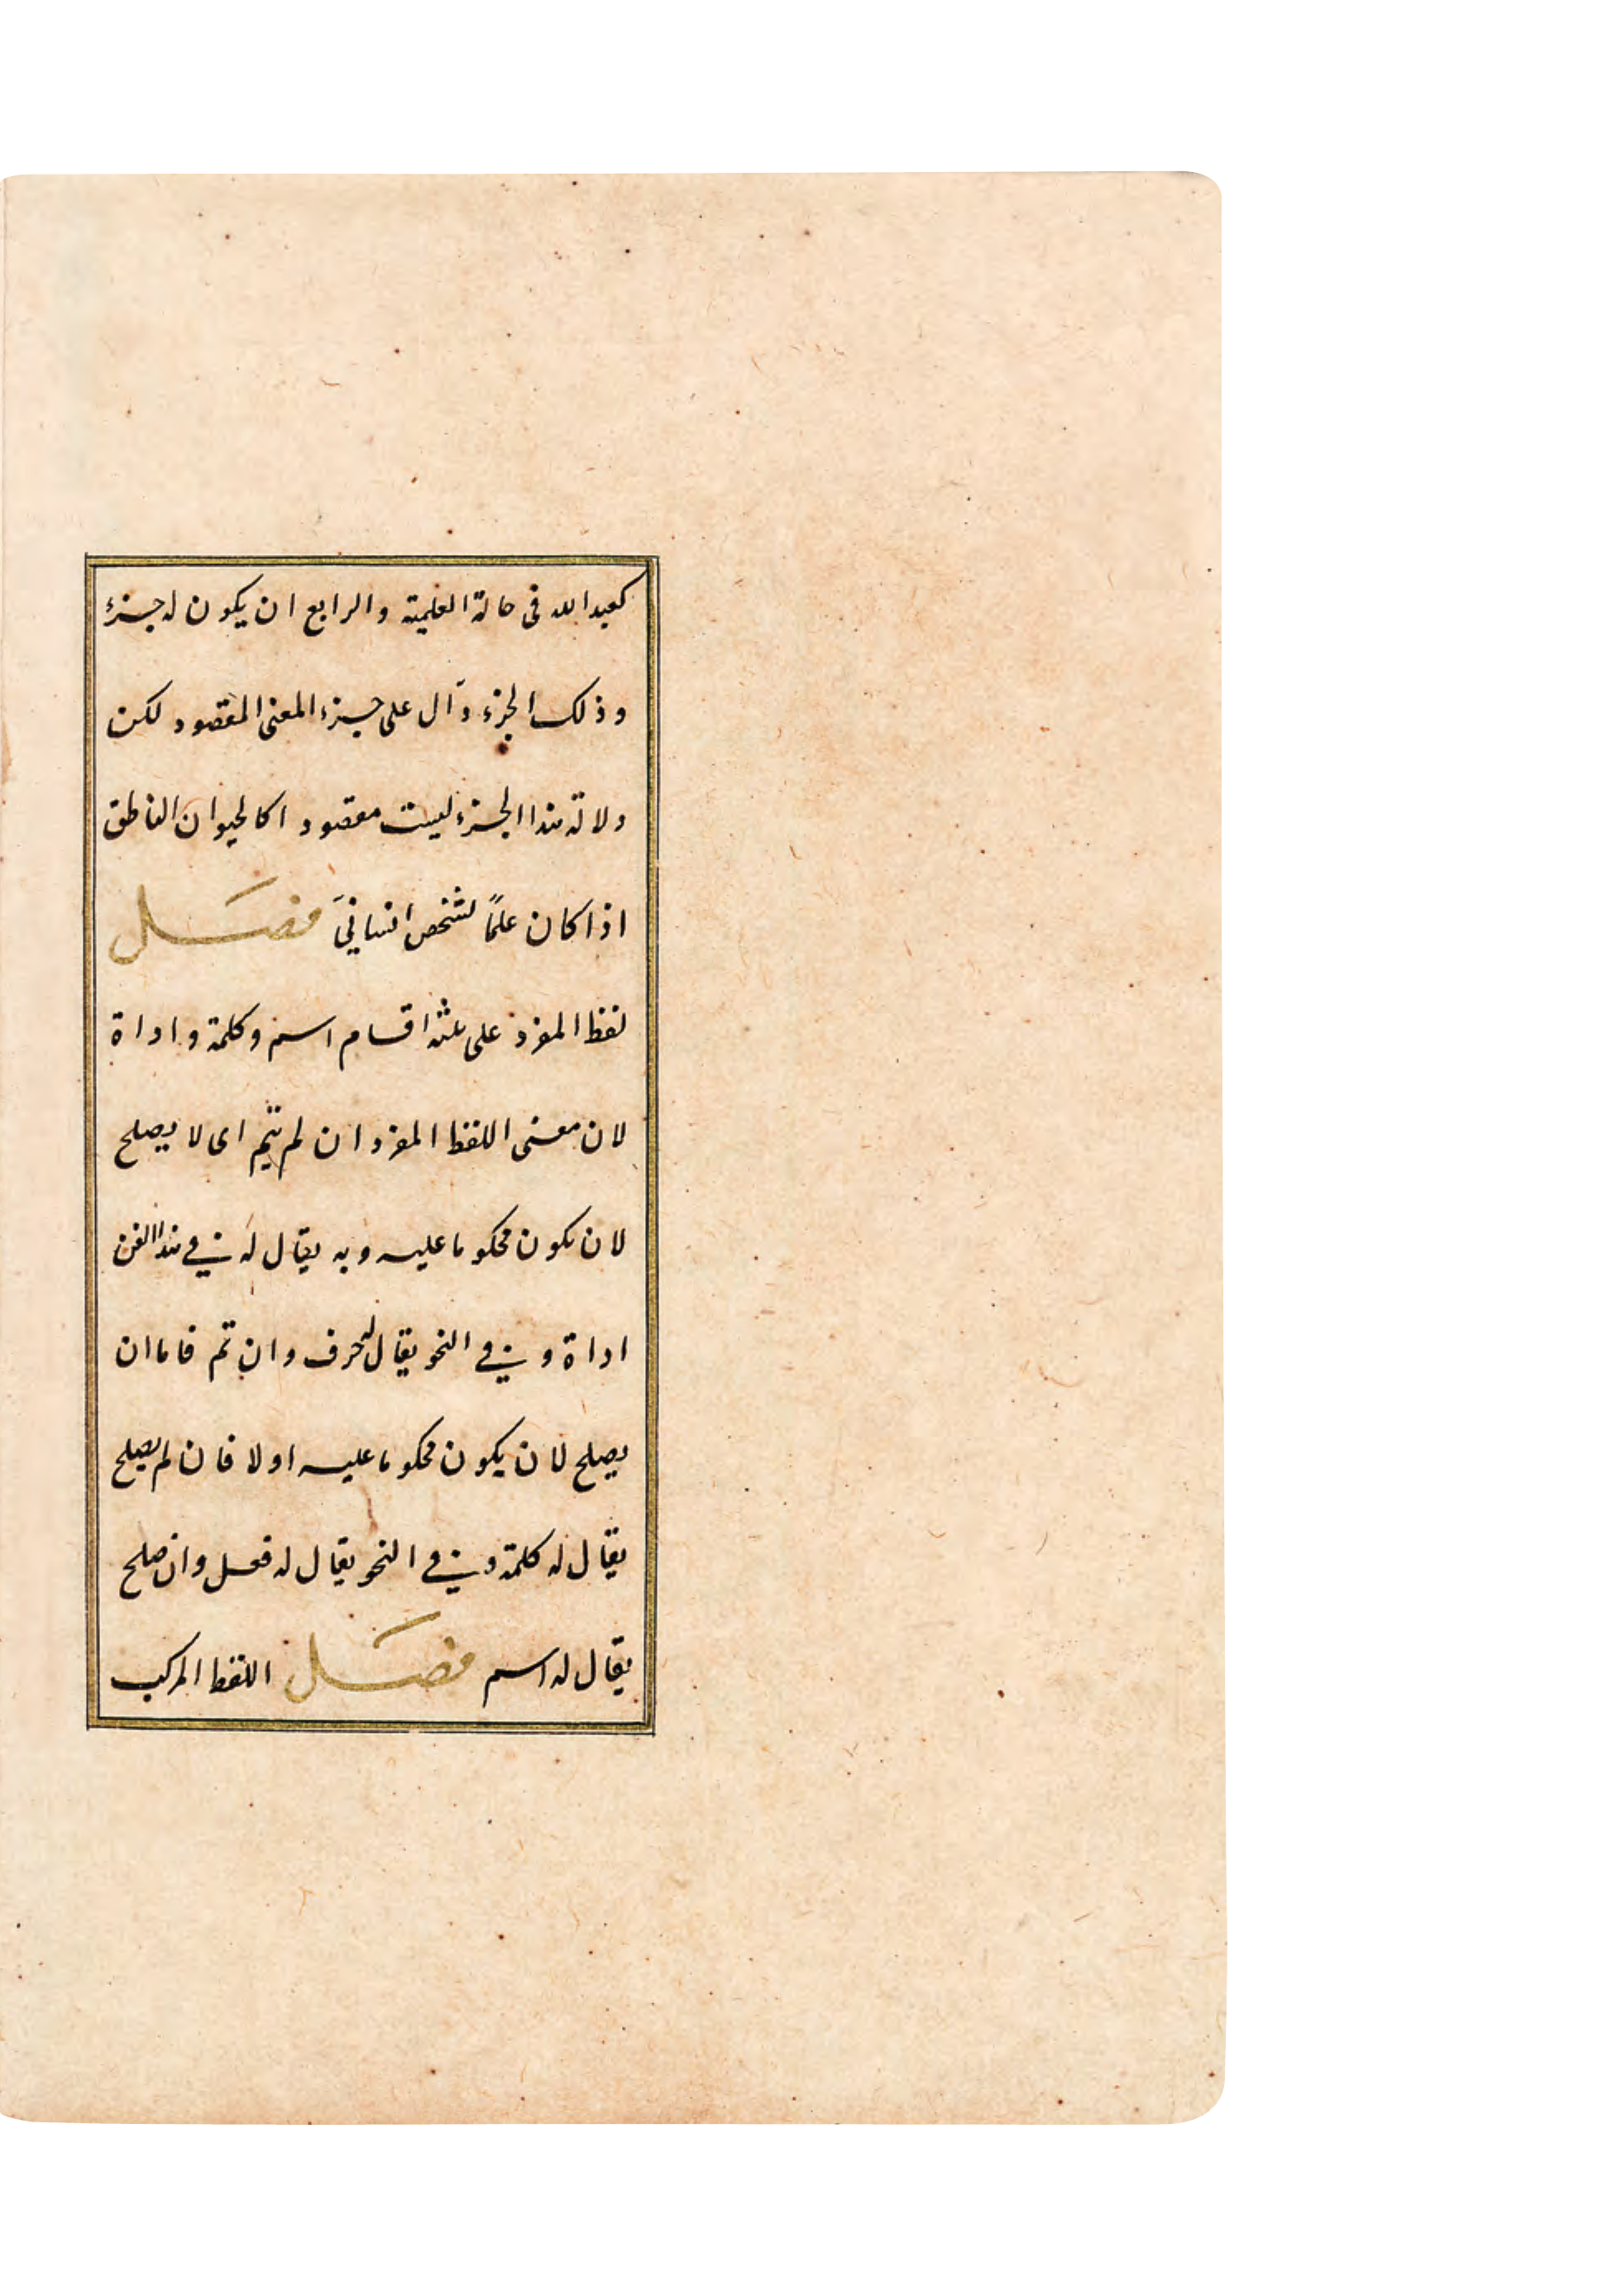 كعبد الله فى حالة العلمية والرابع ان يكون له جزء
وذلك الجزء دآل على جزء المعنى المقصود لكن
دلالة هذا الجزء ليست مقصودا كالحيوان الناطق
اذا كان علمًا لشخص انسانيَ فصَل
لفظ المفرد على ثلثه اقسام اسم وكلمة واداة
لان معنى اللفظ المفرد ان لم يتم اى لا يصلح
لان يكون محكوما عليه وبه يقال له فى هذا الفن
اداة وفى النحو يقال له حرف وان تم فاما ان
يصلح لان يكون محكوما عليه اولا فان لم يصلح
يقال له كلمة وفى النحو يقال له فعل وان صلح
يقال له اسم فصَل اللفظ المركب